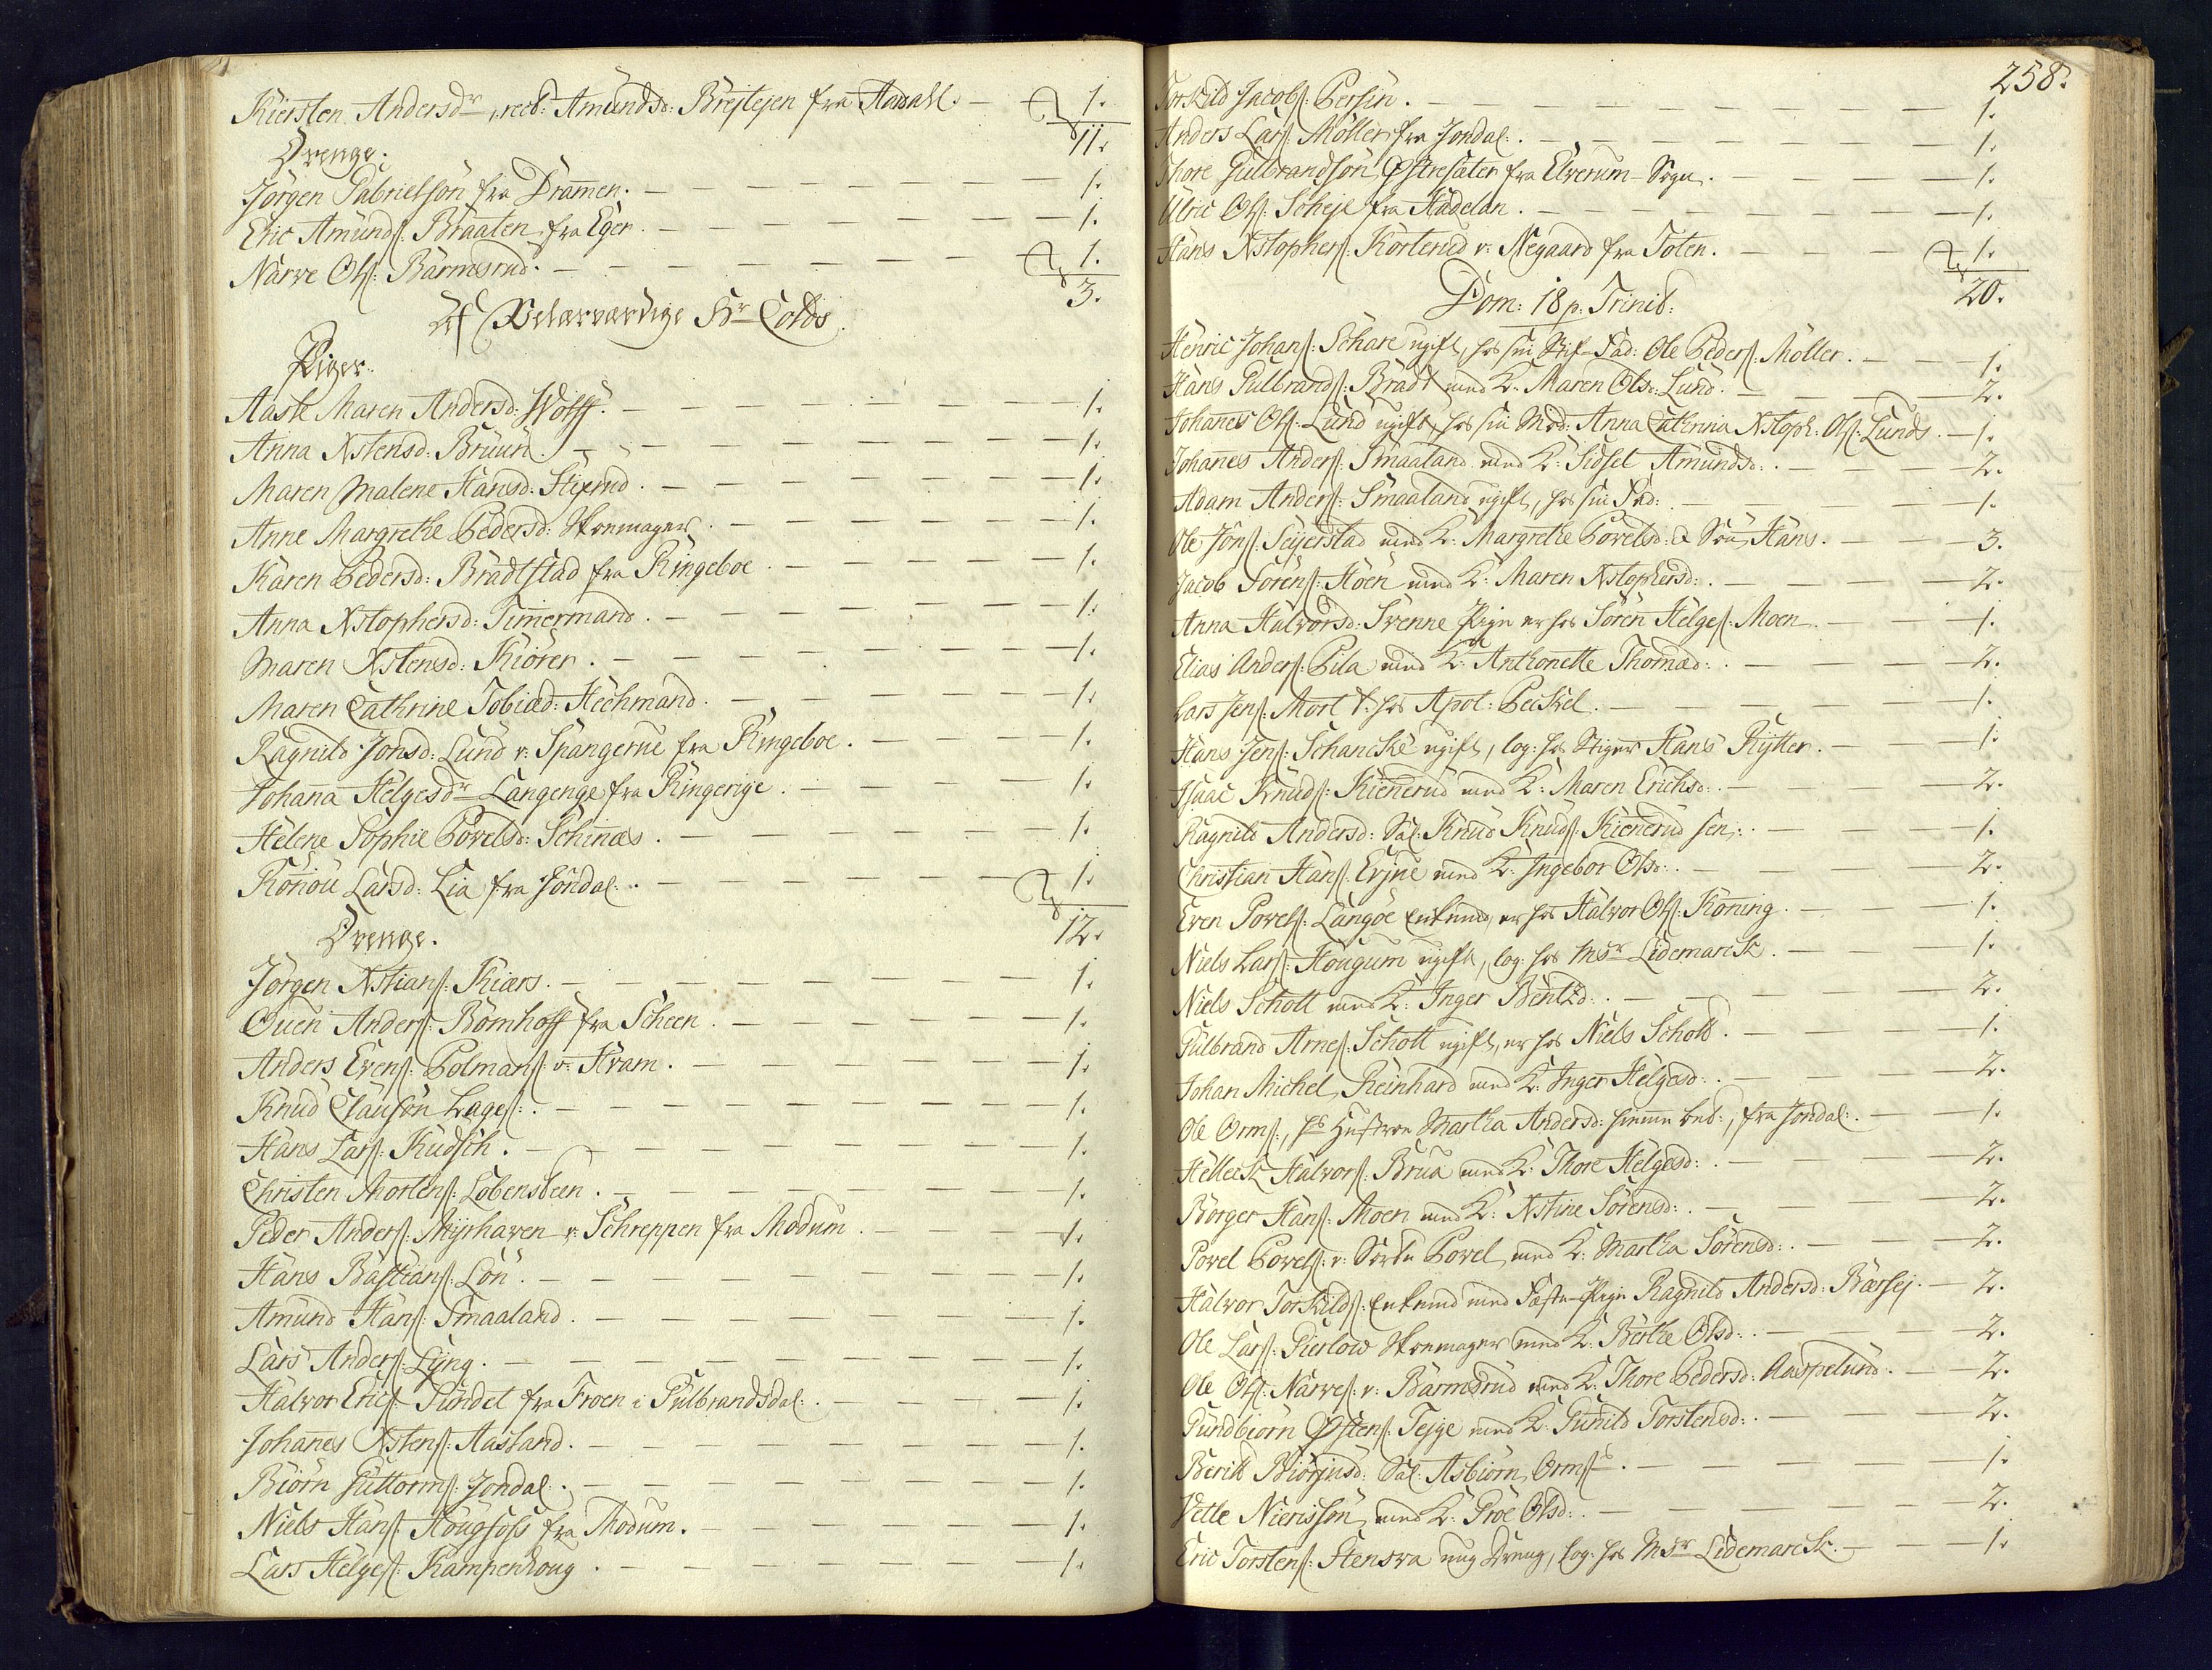 Kiersten Andersdr, rect: Amunds: Brejlejen fra Aadahl. — 1.
11.
Drenge.
Jörgen Gabrielsön fra Dramen. — 1.
Eric Amunds: Braaten fra Eger. — 1.
Narve Ols: Bärmesrud. — 1.
3.
Af Velærværdige Hr Colds
Piger.
Aaste Maren Andersd: Wolff. — 1.
Anna Xstensd: Bruun. — 1.
Maren Malene Hansd: Stixrud. — 1.
Anne Margrethe Pedersd: Skomager. — 1.
Karen Pedersd: Bradtstad fra Ringeboe. — 1.
Anna Xstophersd: Timermand. — 1.
Maren Xstensd: Kiörer. — 1.
Maren Cathrine Tobiæd: Hechmand. — 1.
Ragnild Jonsd: Lund v: Spangerne fra Ringeboe. — 1.
Johana Helgesdr Langenge fra Ringerige. — 1.
Helene Sophie Povelsd: Schinæs. — 1.
Rönou Larsd: Lia fra Jondal: — 1.
12.
Drenge.
Jörgen Xstians: Kiærs. — 1.
Ouen Anders: Bömhoff fra Scheen. — 1.
Anders Evens: Polmans: v: Hvam. — 1.
Knud Clausön Lages: — 1.
Hans Lars: Kudsch. — 1.
Christen Mortens: Löbensteen. — 1.
Peder Anders: Myrhaven v: Schreppen fra Modum. — 1.
Hans Bastians: Lön. — 1.
Amund Hans: Smaaland. — 1.
Lars Anders: Lyng. — 1.
Halvor Erics: Sundet fra Froen i Gulbrandsdal: — 1.
Johanes Xstens: Aasland. — 1.
Biörn Guttorms: Jondal: — 1.
Niels Hans: Hougfoss fra Modum. — 1.
Lars Helges: Kampenhoug. — 1.
258.
Torkild Jacobs: Persin. — 1.
Anders Lars: Möller fra Jondal: — 1.
Thore Gulbrandsön Östresäter fra Elverum-Sogn. — 1.
Ulric Ols: Scheje fra Hadelan. — 1.
Hans Xstophers: Korterud v: Negaard fra Toten. — 1.
20.
Dom: 18 p. Trinit:
Henric Johans: Schare ugift, hos sin Stif-Fad: Ole Peders: Möller. — 1.
Hans Gulbrands: Bradt med K: Maren Olsd: Lund. — 2.
Johanes Ols: Lund ugift, hos sin Mod: Anna Cathrina Xstoph: Ols: Lunds. — 1.
Johanes Anders: Smaaland med K: Sidsel Amundsd: — 2.
Adam Anders: Smaaland ugift, hos sin Fad: — 1.
Ole Jöns: Sejerstad med K: Margrethe Povelsd: & Sön Hans. — 3.
Jacob Sörens: Höen med K: Maren Xstophersd: — 2.
Anna Halvorsd: Svenne Pige er hos Sören Helges: Moen. — 1.
Elias Anders: Pila med K: Anthonette Thomæd: — 2.
Lars Jens: Mort t: hos Apot: Peckel. — 1.
Hans Jens: Schancke ugift, log: hos Stiger Hans Rytter. — 1.
Isaac Knuds: Kienerud med K: Maren Erichsd: — 2.
Ragnild Andersd: Sal: Knud Knuds: Kienerud sen: — 1.
Christian Hans: Erjne med K: Ingebor Olsd: — 2.
Even Povels: Langöe Enkemd, er hos Halvor Ols: Koning. — 1.
Niels Lars: Hougum ugift, log: hos Msr Lidemarck. — 1.
Niels Schott med K: Inger Bentzd: — 2.
Gulbrand Arnes: Schott ugift, er hos Niels Schott. — 1.
Johan Michel Reinhard med K: Inger Helgesd: — 2.
Ole Orms:, hs Hustroe Martha Andersd: hieme ber:, fra Jondal: — 1.
Helleck Halvors: Brua med K: Thore Helgesd: — 2.
Börger Hans: Moen med K: Xstine Sörensd: — 2.
Povel Povels: v: Sorte Povel med K: Martha Sörensd: — 2.
Halvor Torkilds: Enkemd med Fæste-Pige Ragnild Andersd: Bæssej. — 2.
Ole Lars: Gierlow Skomager med K: Berthe Olsd: — 2.
Ole Ols: Narves: v: Bärmesrud med K: Thore Pedersd: Aaspelund. — 2.
Gundbiörn Östens: Tejge med K: Gunild Torstensd: — 2.
Berit Biörjnsd: Sal: Asbiörn Ormss. — 1.
Vetle Nierissön med K: Groe Olsd: — 2.
Eric Torstens: Stensva ung Dreng, log: hos Msr Lidemarck. — 1.